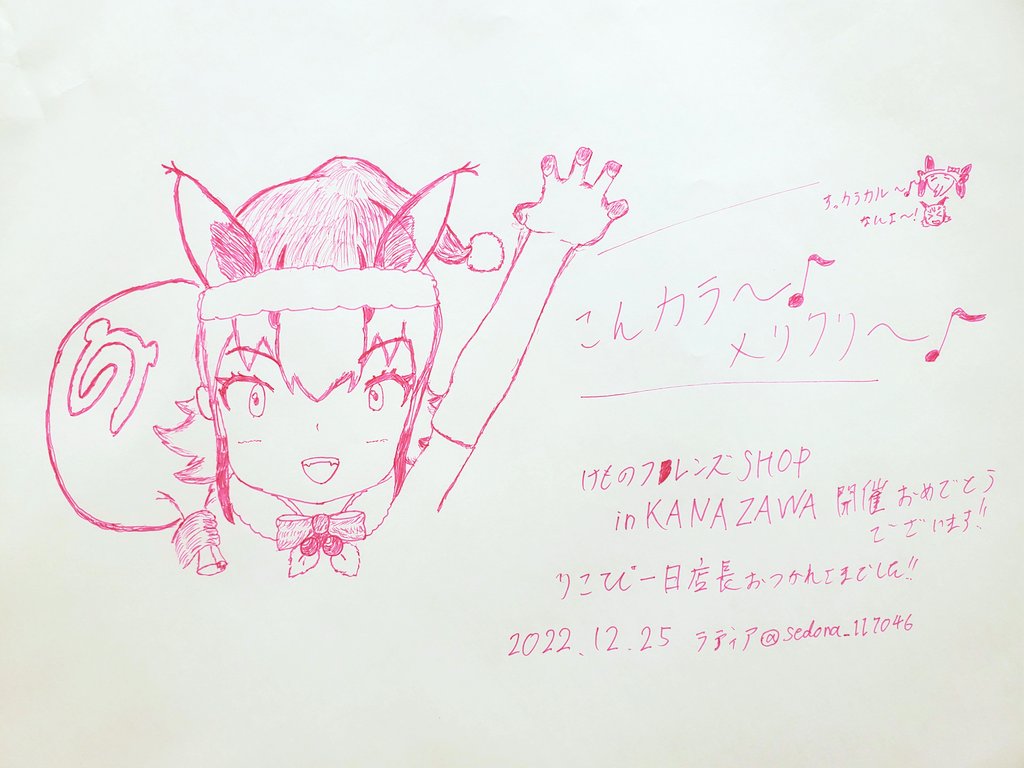 すっクラカル〜♪
なんよ〜!
こんカラ〜♪
メリクリ〜♪
けものフレンズSHOP
in KANAZAWA 開催おめでとう
ございます!!
りこぴ一日店長おつかれさまでした!!
2022.12.25 ラディア@sedona_117046
の